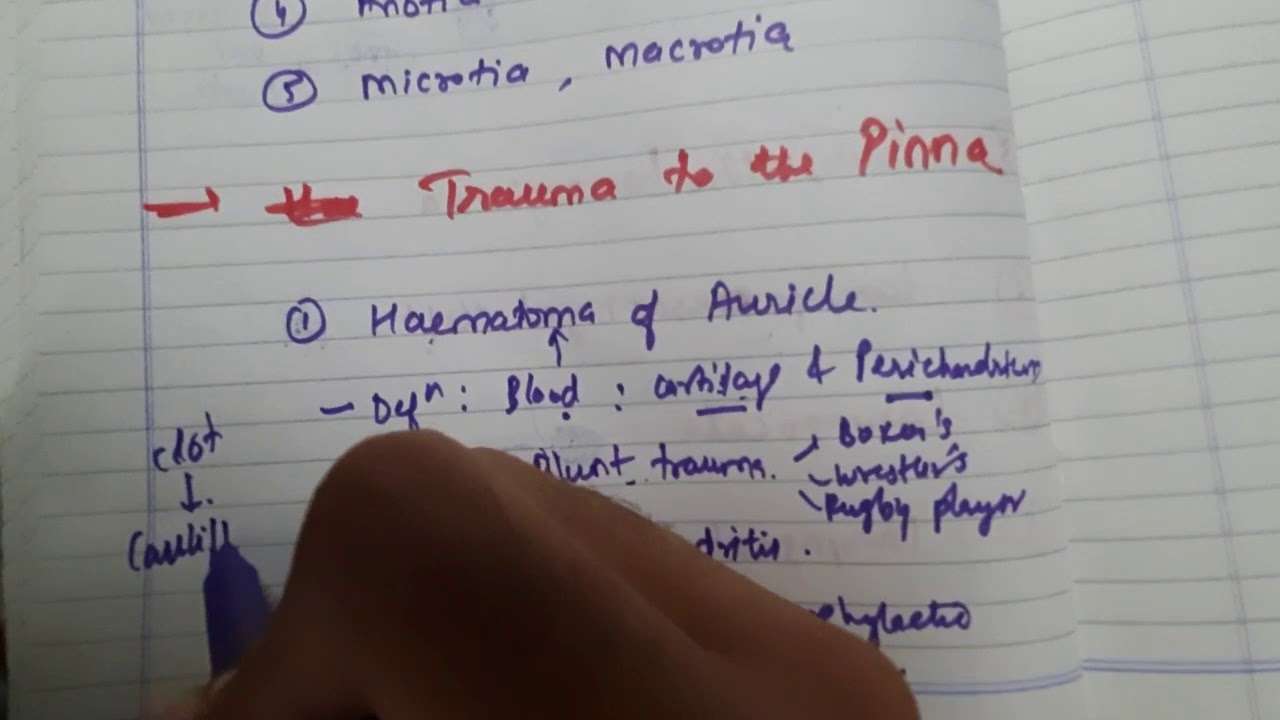 ④
⑤ microtia, macrotia
→ Trauma to the Pinna
① Haematoma of Auricle.
↑
— Defⁿ : Blood : cartilage & Perichondrium
clot
↓.
Blunt trauma. Boxer's
Wrestler's
Rugby player